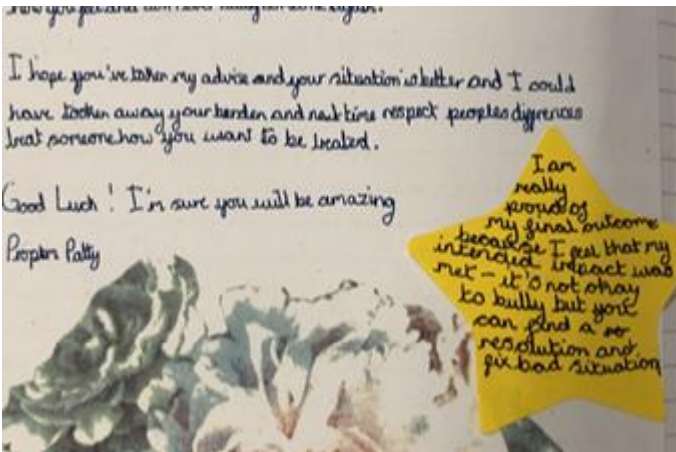 how you feel and don't ever bully someone again.
I hope you've taken my advise and your situation is better and I could
have tocken away your burden and next time respect peoples diffrences
treat someone how you want to be treated.
Good Luck! I'm sure you will be amazing
Patty
I am
really
proud of
my final outcome
because I feel that my
intended impact was
met - it's not okay
to bully but you
can find a
resolution and
fix bad situation